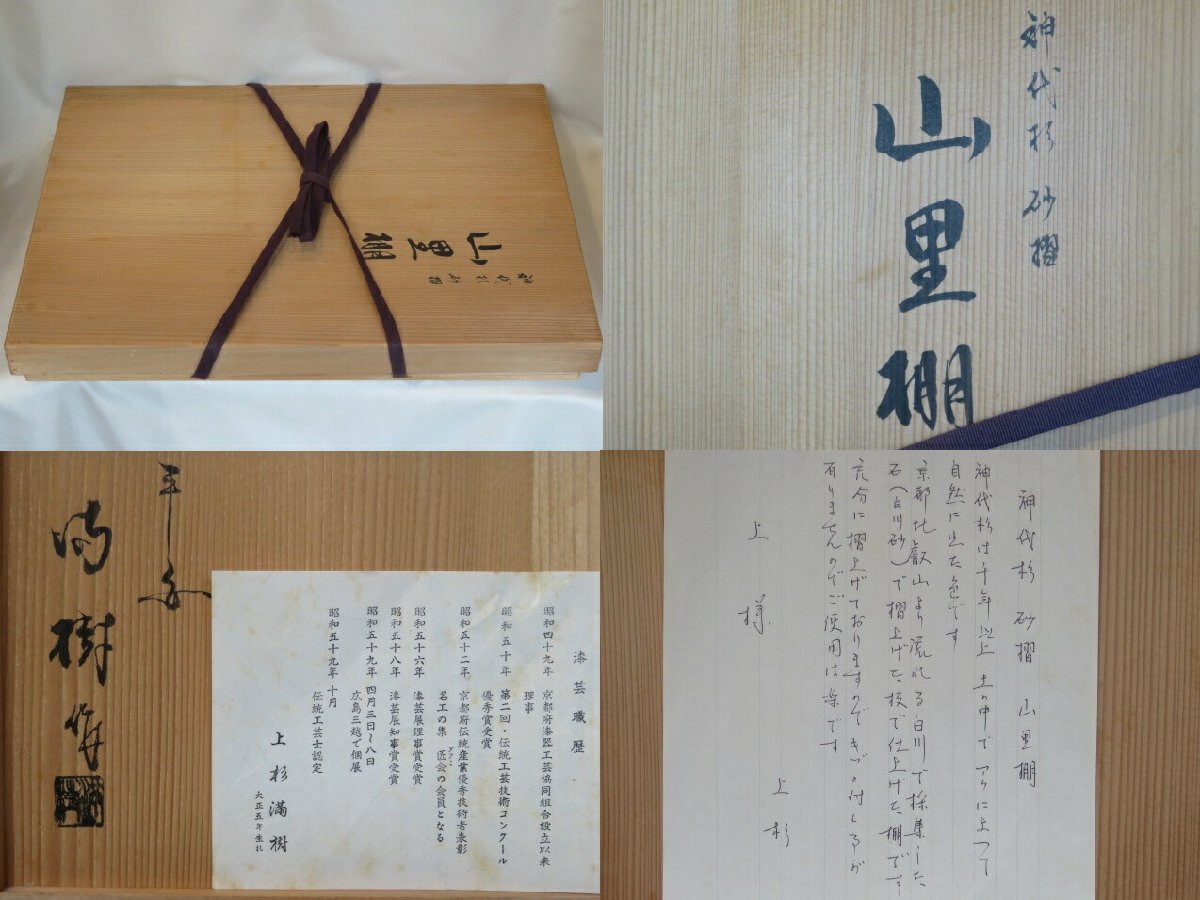 山里棚
神代杉 砂摺
神代杉 砂摺
山里棚
満樹 作
漆芸職歴
昭和四十九年 京都府漆器工芸協同組合設立以来
理事
昭和五十年 第二回・伝統工芸技術コンクール
優秀賞受賞
昭和五十二年 京都府伝統産業優秀技術者表彰
名工の集 匠会の会員となる
タクミ
昭和五十六年 漆芸展理事賞受賞
昭和五十八年 漆芸展知事賞受賞
昭和五十九年 四月三日〜八日
広島三越で個展
昭和五十九年 十月
伝統工芸士認定
上杉満樹
大正五年生れ
神代杉 砂摺 山里棚
神代杉は千年以上 土の中でアクによつて
自然に出た色です
京都比叡山より流れる白川で採集した
石(白川砂)で摺上げた板で仕上げた棚です
充分に摺上げておりますのでキヅの付く事が
有りませんのでご使用は楽です
上杉
上 様